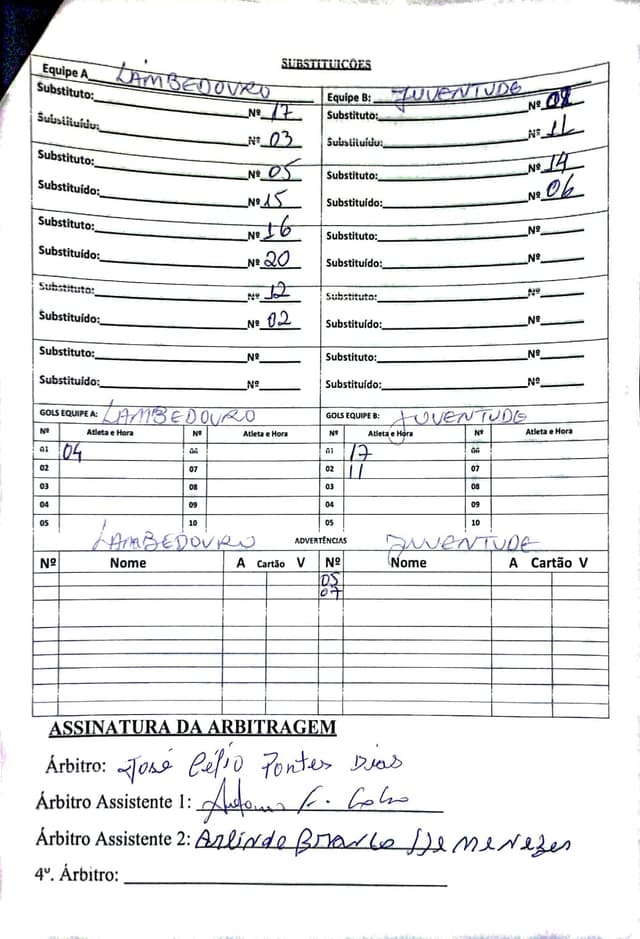 SUBSTITUIÇÕES
Equipe A LAMBEDOURO
Substituto: Nº 17
Substituído: Nº 03
Substituto: Nº 05
Substituído: Nº 15
Substituto: Nº 16
Substituído: Nº 20
Substituto: Nº 12
Substituído: Nº 02
Substituto: Nº
Substituído: Nº
Equipe B: JUVENTUDE
Substituto: Nº 08
Substituído: Nº 11
Substituto: Nº 14
Substituído: Nº 06
Substituto: Nº
Substituído: Nº
Substituto: Nº
Substituído: Nº
Substituto: Nº
Substituído: Nº
GOLS EQUIPE A: LAMBEDOURO
Nº Atleta e Hora Nº Atleta e Hora
01 04 06
02 07
03 08
04 09
05 10
GOLS EQUIPE B: JUVENTUDE
Nº Atleta e Hora Nº Atleta e Hora
01 17 06
02 11 07
03 08
04 09
05 10
LAMBEDOURO ADVERTÊNCIAS JUVENTUDE
Nº Nome A Cartão V Nº Nome A Cartão V
05
07
ASSINATURA DA ARBITRAGEM
Árbitro: José Célio Pontes Dias
Árbitro Assistente 1:
Árbitro Assistente 2: Arlindo Branco De Menezes
4º. Árbitro: